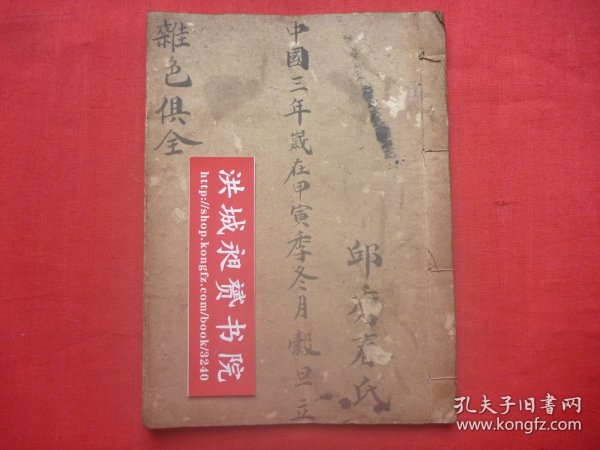 中國三年歲在甲寅季冬月穀旦立
雜色俱全
邱秀春氏
洪城昶赟书院
http://shop.kongfz.com/book/3240
孔夫子旧书网
www.kongfz.com